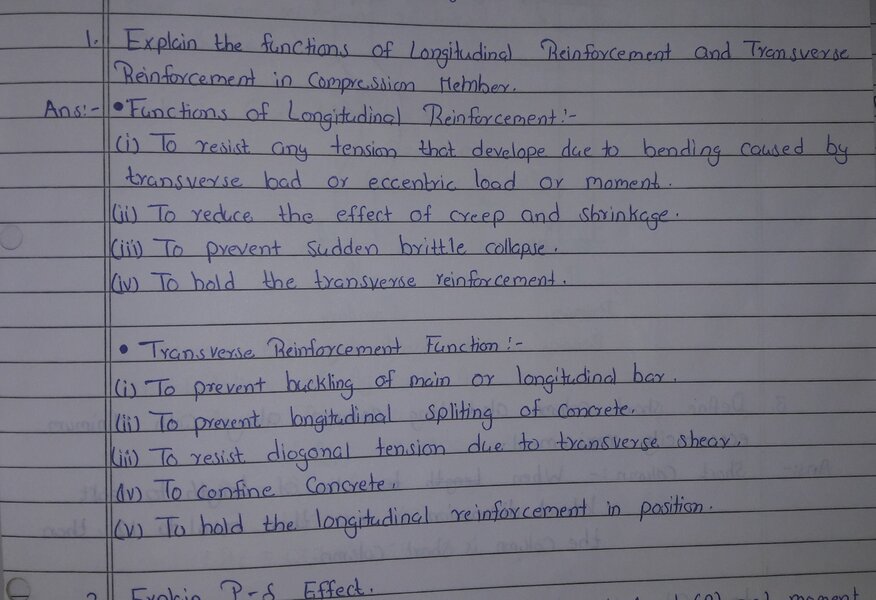 1. Explain the functions of Longitudinal Reinforcement and Transverse
Reinforcement in Compression Member.
Ans:- • Functions of Longitudinal Reinforcement:-
(i) To resist any tension that develope due to bending caused by
transverse load or eccentric load or moment.
(ii) To reduce the effect of creep and shrinkage.
(iii) To prevent sudden brittle collapse.
(iv) To hold the transverse reinforcement.
• Transverse Reinforcement Function:-
(i) To prevent buckling of main or longitudinal bar.
(ii) To prevent longitudinal spliting of concrete.
(iii) To resist diogonal tension due to transverse shear.
(iv) To confine Concrete.
(v) To hold the longitudinal reinforcement in position.
2. Explain P-δ Effect.
moment